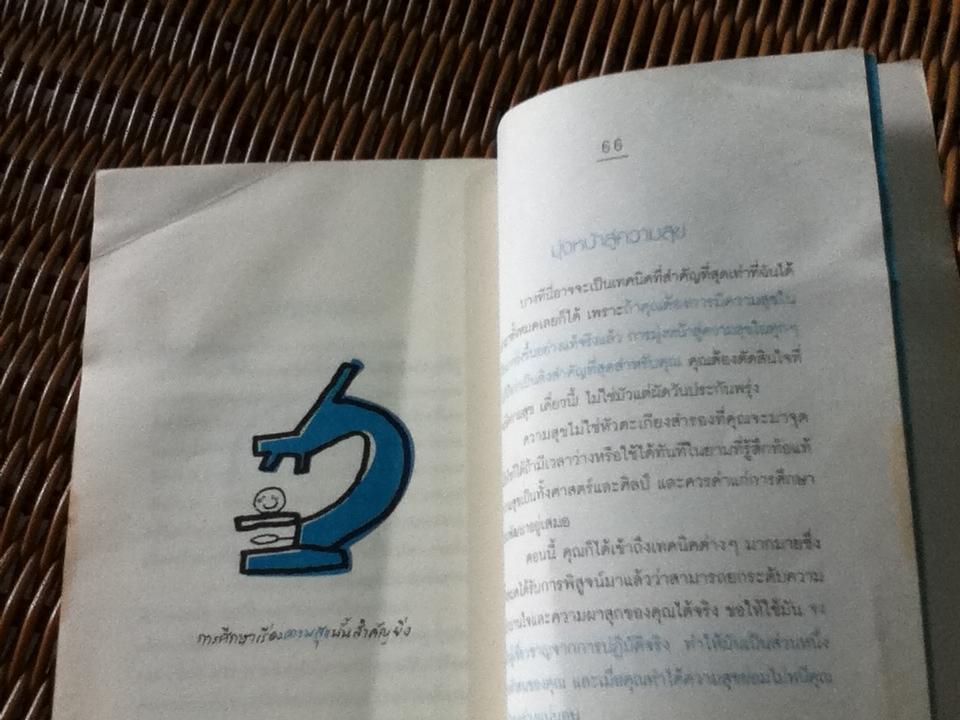 การศึกษาเรื่องความสุขนั้นสำคัญยิ่ง
66
มุ่งหน้าสู่ความสุข
บางทีนี่อาจจะเป็นเทคนิคที่สำคัญที่สุดเท่าที่ฉันได้
มาทั้งหมดเลยก็ได้ เพราะถ้าคุณต้องการมีความสุขใน
ขึ้นอย่างแท้จริงแล้ว การมุ่งหน้าสู่ความสุขในทุกๆ
เป็นสิ่งสำคัญที่สุดสำหรับคุณ คุณต้องตัดสินใจที่
มีความสุข เดี๋ยวนี้! ไม่ใช่มัวแต่ผัดวันประกันพรุ่ง
ความสุขไม่ใช่หัวตะเกียงสำรองที่คุณจะมาจุด
ได้ถ้ามีเวลาว่างหรือใช้ได้ทันทีในยามที่รู้สึกท้อแท้
ความสุขเป็นทั้งศาสตร์และศิลป์ และควรค่าแก่การศึกษา
พัฒนาอยู่เสมอ
ตอนนี้ คุณก็ได้เข้าถึงเทคนิคต่างๆ มากมายซึ่ง
ได้รับการพิสูจน์มาแล้วว่าสามารถยกระดับความ
และความผาสุกของคุณได้จริง ขอให้ใช้มัน จง
จากการปฏิบัติจริง ทำให้มันเป็นส่วนหนึ่ง
ของคุณ และเมื่อคุณทำได้ความสุขย่อมไม่หนีคุณ